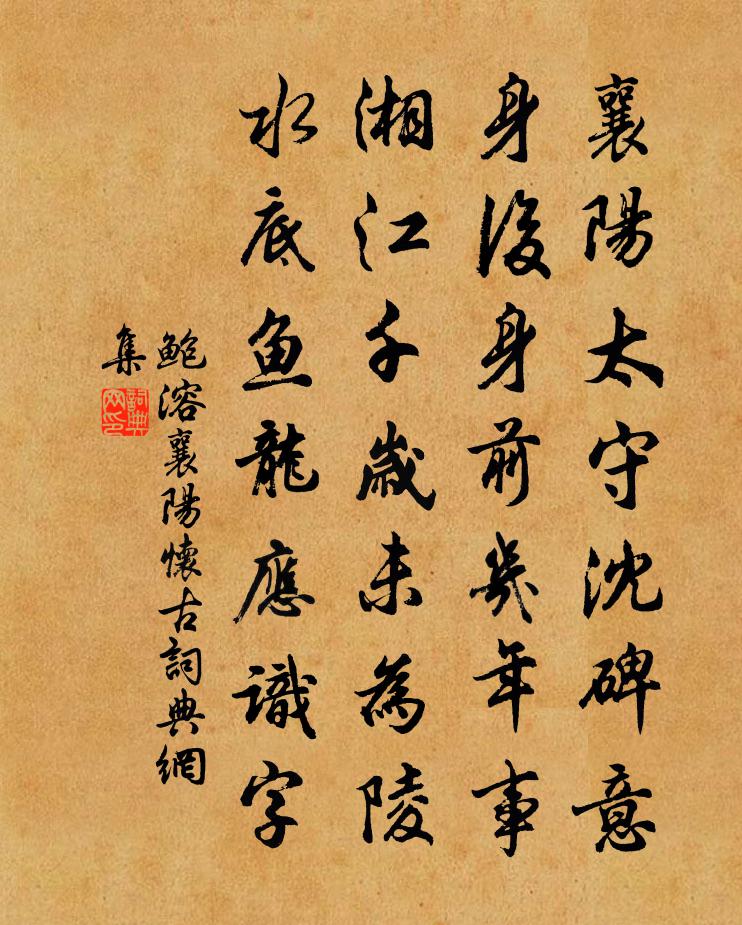 襄陽太守沈碑意
身後身前幾年事
湘江千歲未為陵
水底魚龍應識字
鮑溶襄陽懷古詞典網
集
詞典
网印